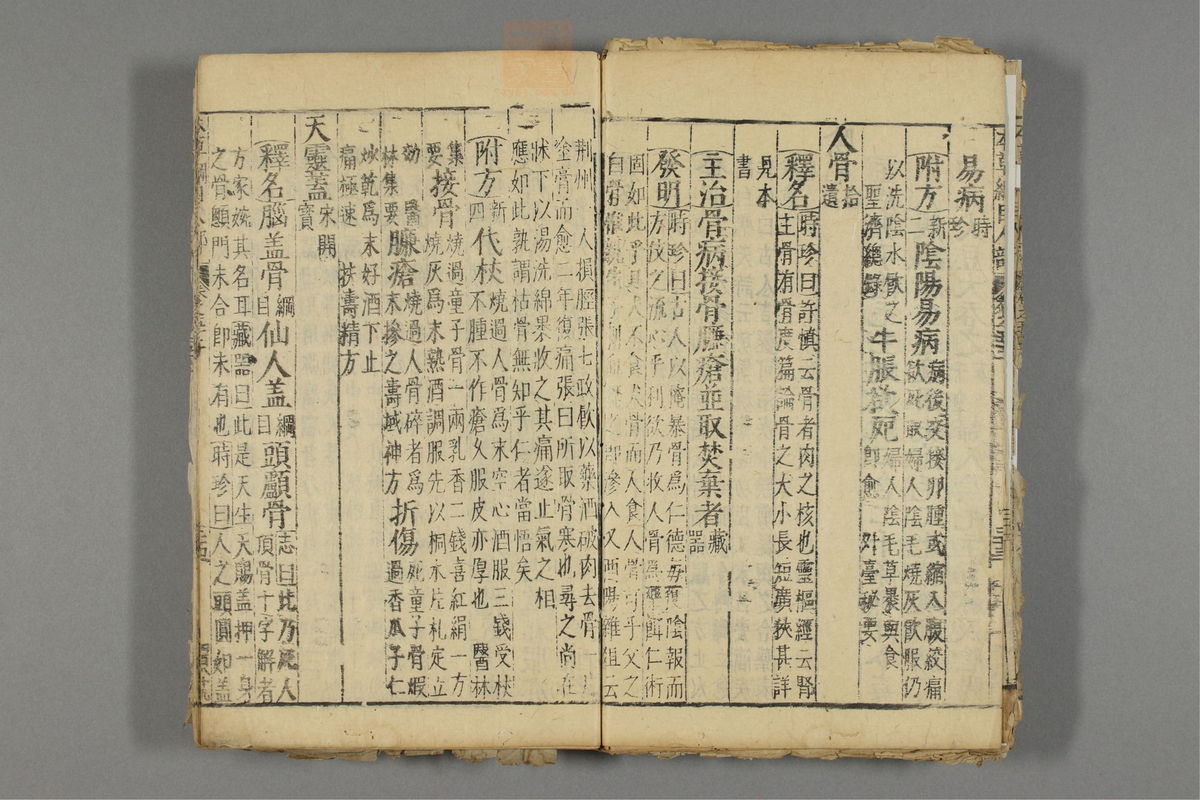 易病時珍
附方新二陰陽易病病後交接卵腫或縮入腹絞痛欲死取婦人陰毛燒灰飲服仍
以洗陰水飲之聖濟總錄牛脹欲死婦人陰毛草裹與食即愈外臺秘要
人骨拾遺
釋名時珍曰許慎云骨者肉之核也靈樞經云腎主骨有骨度篇論骨之大小長短廣狹甚詳
見本書
主治骨病接骨臁瘡並取焚棄者藏器
發明時珍曰古人以掩暴骨爲仁德每獲陰報而
方伎之流心乎利欲乃收人骨爲藥餌仁術
固如此乎且犬不食犬骨而人食人骨可乎父之
白骨惟親生子刺血瀝之即滲入又酉陽雜俎云
荆州一人損脛張七政飲以藥酒破肉去骨一片
塗膏而愈二年復痛張曰所取骨寒也尋之尚在
牀下以湯洗綿裹收之其痛遂止氣之相
應如此孰謂枯骨無知乎仁者當悟矣
附方新四代杖燒過人骨爲末空心酒服三錢受杖不腫不作瘡久服皮亦厚也醫林
集要接骨燒過童子骨一兩乳香二錢喜紅絹一方燒灰爲末熟酒調服先以桐木片札定立
効醫林集要臁瘡燒過人骨碎者爲末摻之壽域神方折傷死童子骨煅過香瓜子仁
炒乾爲末好酒下止痛極速扶壽精方
天靈蓋宋開寶
釋名腦蓋骨綱目仙人蓋綱目頭顱骨志曰此乃死人頂骨十字解者
方家婉其名耳藏器曰此是天生天賜盖押一身
之骨顖門未合即未有也時珍曰人之頭圓如蓋